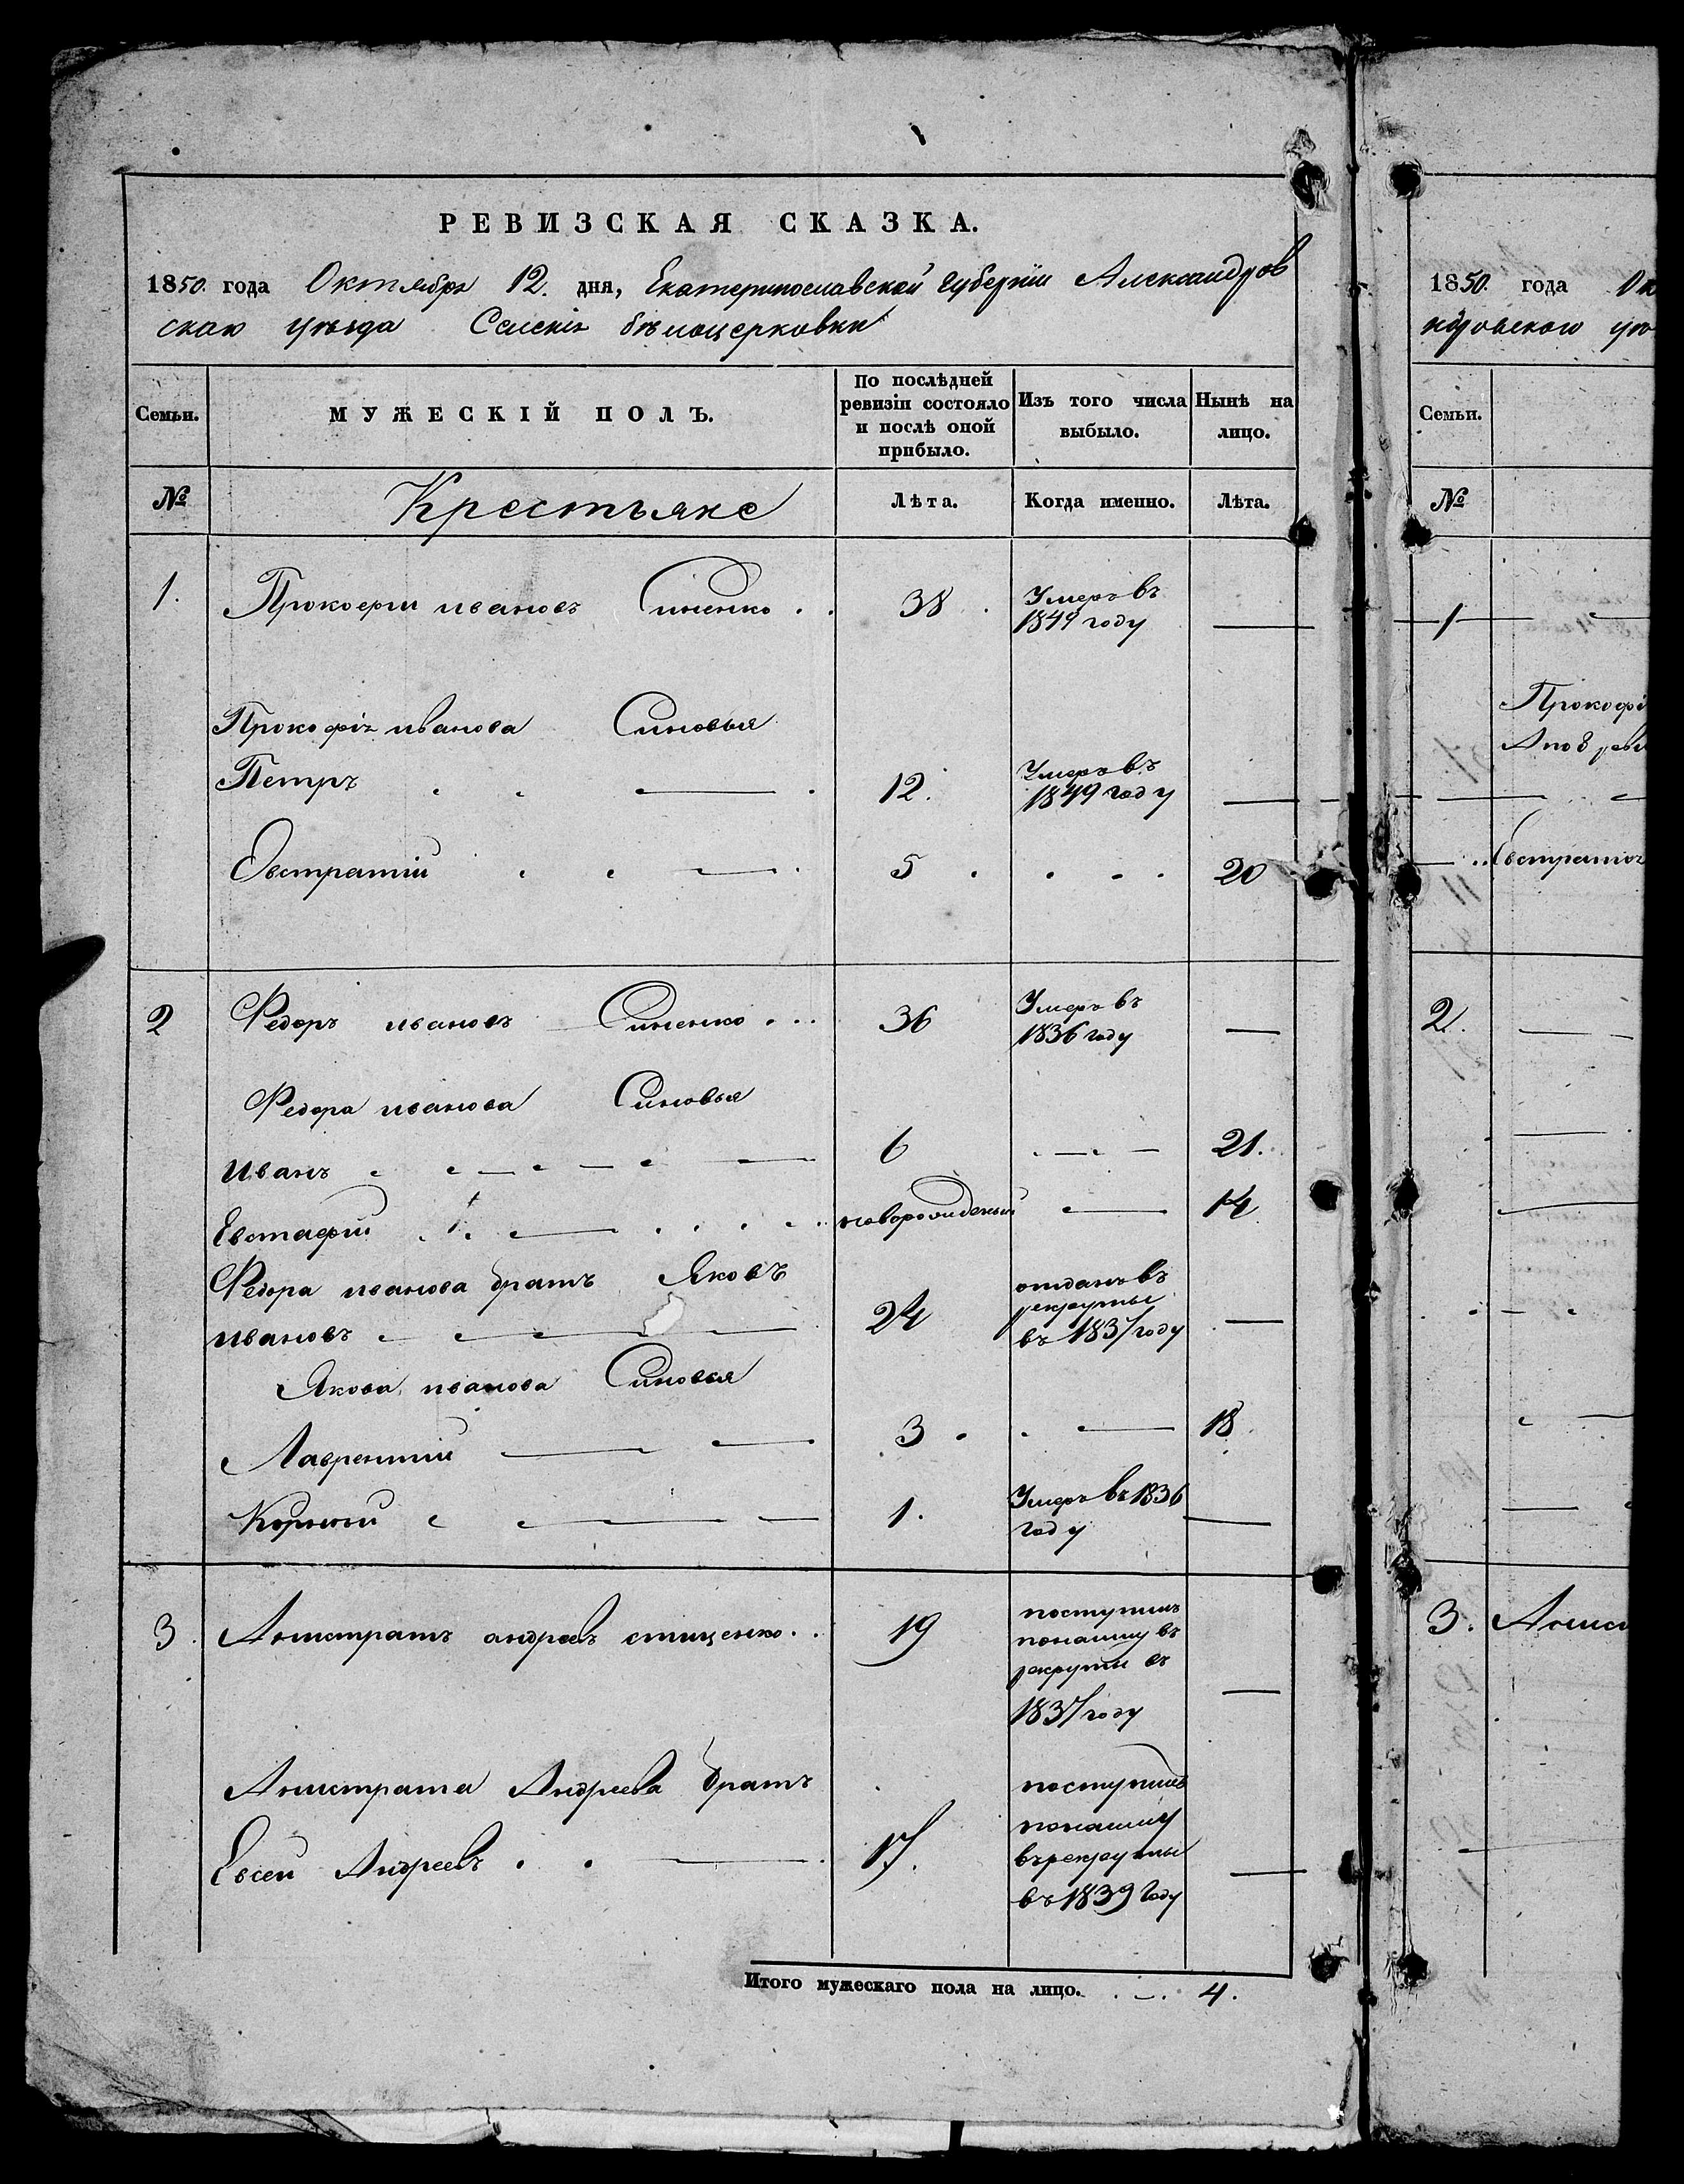 РЕВИЗСКАЯ СКАЗКА.
1850. года Октября 12. дня, Екатеринославской губернии Александров
скаго уезда Селения беълоцерковки
Семьи.
МУЖЕСКІЙ ПОЛЪ.
По послѣдней ревизіи состояло и послѣ оной прибыло.
Изъ того числа выбыло.
Нынѣ на лицо.
№
Крестьяне
Лѣта.
Когда именно.
Лѣта.
1. Прокофий ивановъ Синенко . . 38 . Умеръ въ
1849 году —
Прокофія иванова Синовья
Петръ 12. Умеръ въ
1849 году —
Евстратий 5 . . - . 20
2 Федоръ ивановъ Синенко . . . 36 Умеръ въ
1836 году —
Федора иванова Синовья
Иванъ 6 — 21.
Евстафий новорожденый — 14
Федора иванова братъ Яковъ
ивановъ 24 отданъ въ
рекруты
въ 1837 году —
Якова иванова Синовья
Лаврентий 3 . — 18.
Корний 1. Умеръ въ 1836
году —
3. андреевъ стиценко . . 19 поступилъ
въ
рекрути въ
1837 году —
Андреева братъ
Евсей Андреевъ . . — 17. поступилъ
въ рекруты
въ 1839 году —
Итого мужескаго пола на лицо. . - . 4.
1850 года Ок
Семьи.
№
1
Прокофі
Евстратия
2.
3.